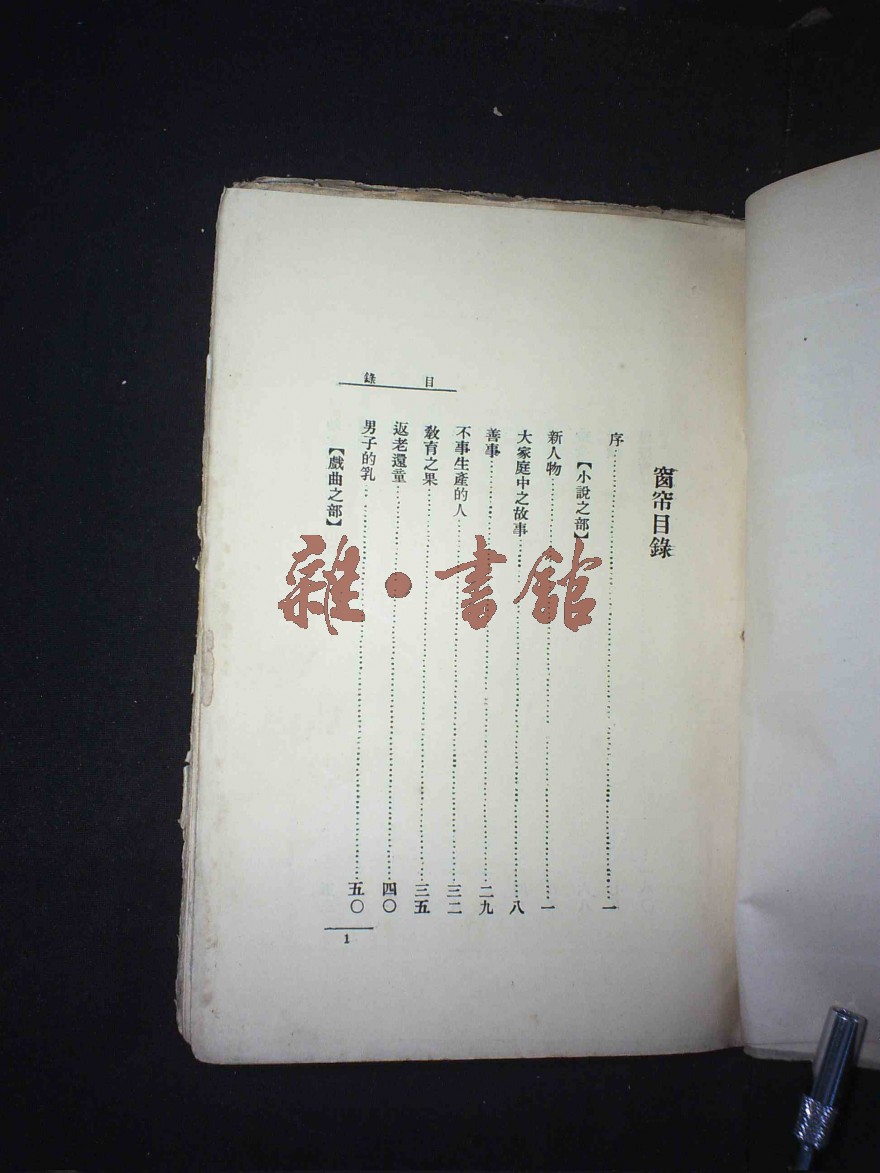 目錄
窗帘目錄
序……一
【小說之部】
新人物……一
大家庭中之故事……八
善事……二九
不事生產的人……三二
教育之果……三五
返老還童……四〇
男子的乳……五〇
【戲曲之部】
1
雜·書館